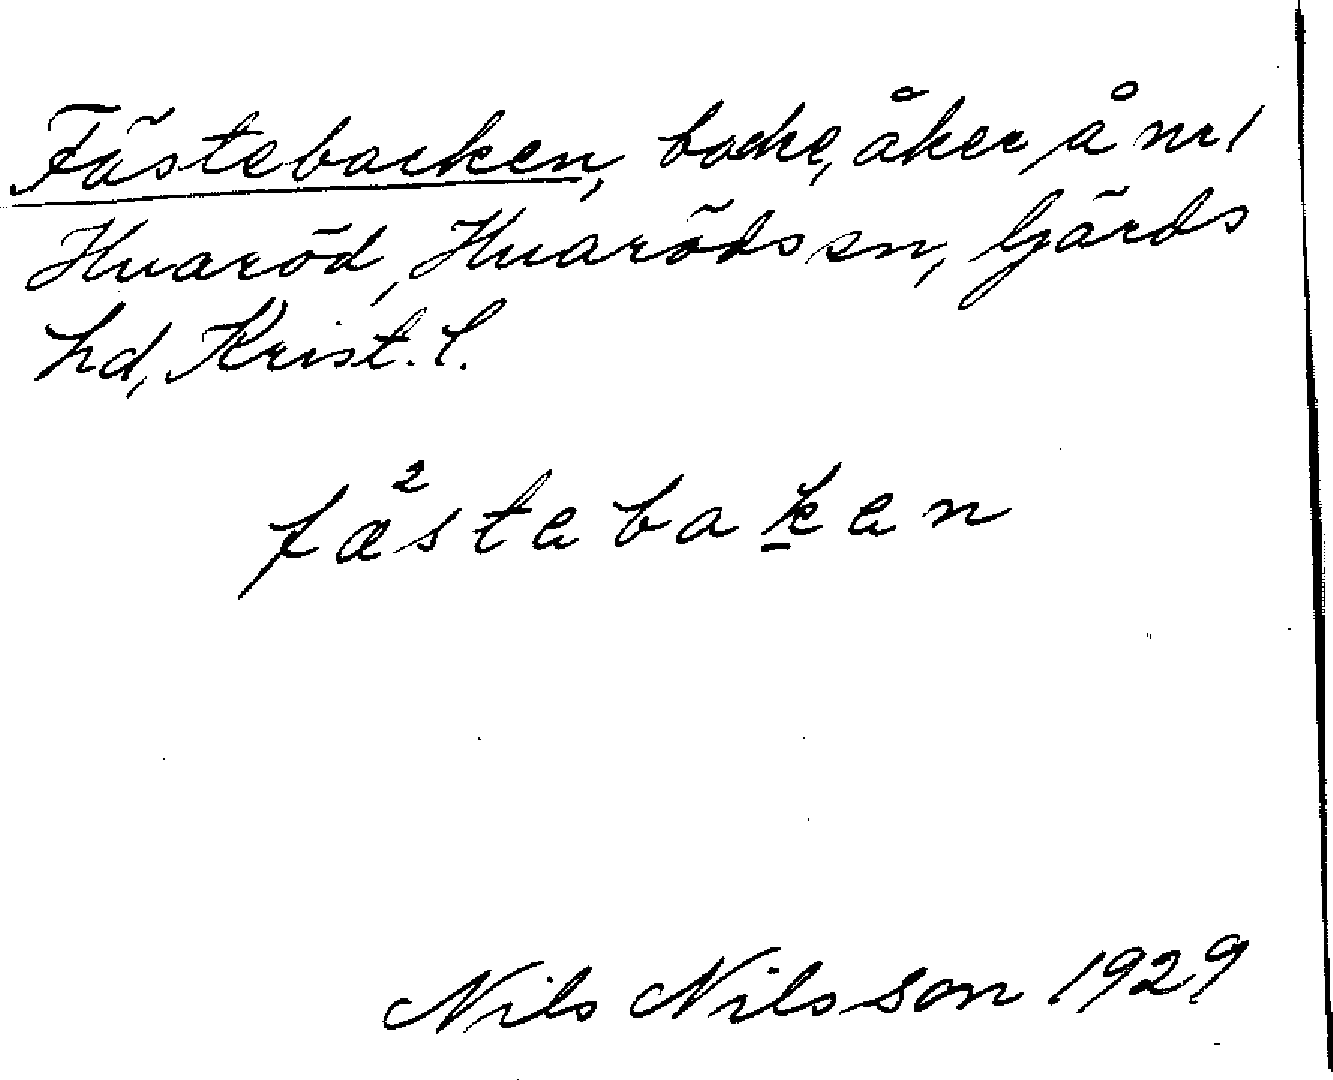 Fästebacken, backe, åker, å nr 1
Huaröd, Huaröds sn, Gärds
hd, Krist. l.
fæ²stebaken
Nils Nilsson 1929